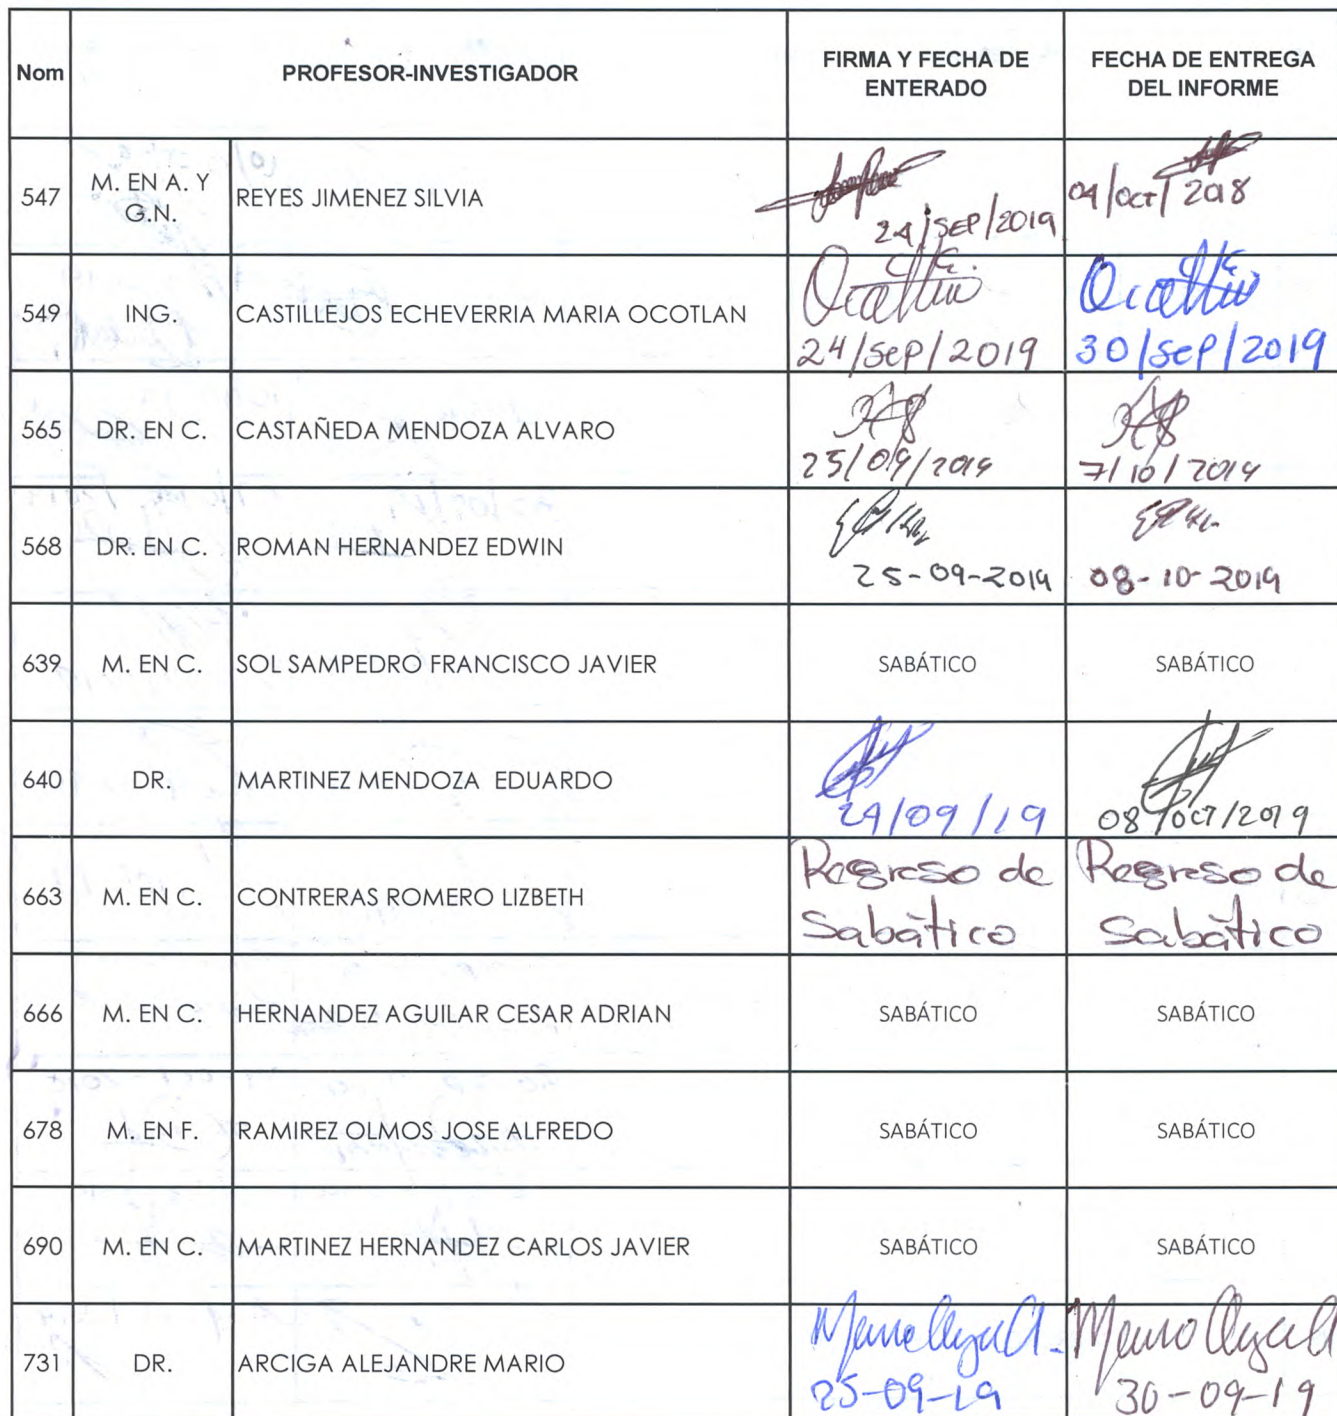 Nom PROFESOR-INVESTIGADOR FIRMA Y FECHA DE ENTERADO FECHA DE ENTREGA DEL INFORME
547 M. EN A. Y G.N. REYES JIMENEZ SILVIA 24/SEP/2019 04/oct/2018
549 ING. CASTILLEJOS ECHEVERRIA MARIA OCOTLAN 24/sep/2019 30/sep/2019
565 DR. EN C. CASTAÑEDA MENDOZA ALVARO 25/09/2019 7/10/2019
568 DR. EN C. ROMAN HERNANDEZ EDWIN 25-09-2019 08-10-2019
639 M. EN C. SOL SAMPEDRO FRANCISCO JAVIER SABÁTICO SABÁTICO
640 DR. MARTINEZ MENDOZA EDUARDO 24/09/19 08/oct/2019
663 M. EN C. CONTRERAS ROMERO LIZBETH Regreso de Sabático Regreso de Sabático
666 M. EN C. HERNANDEZ AGUILAR CESAR ADRIAN SABÁTICO SABÁTICO
678 M. EN F. RAMIREZ OLMOS JOSE ALFREDO SABÁTICO SABÁTICO
690 M. EN C. MARTINEZ HERNANDEZ CARLOS JAVIER SABÁTICO SABÁTICO
731 DR. ARCIGA ALEJANDRE MARIO 25-09-19 30-09-19